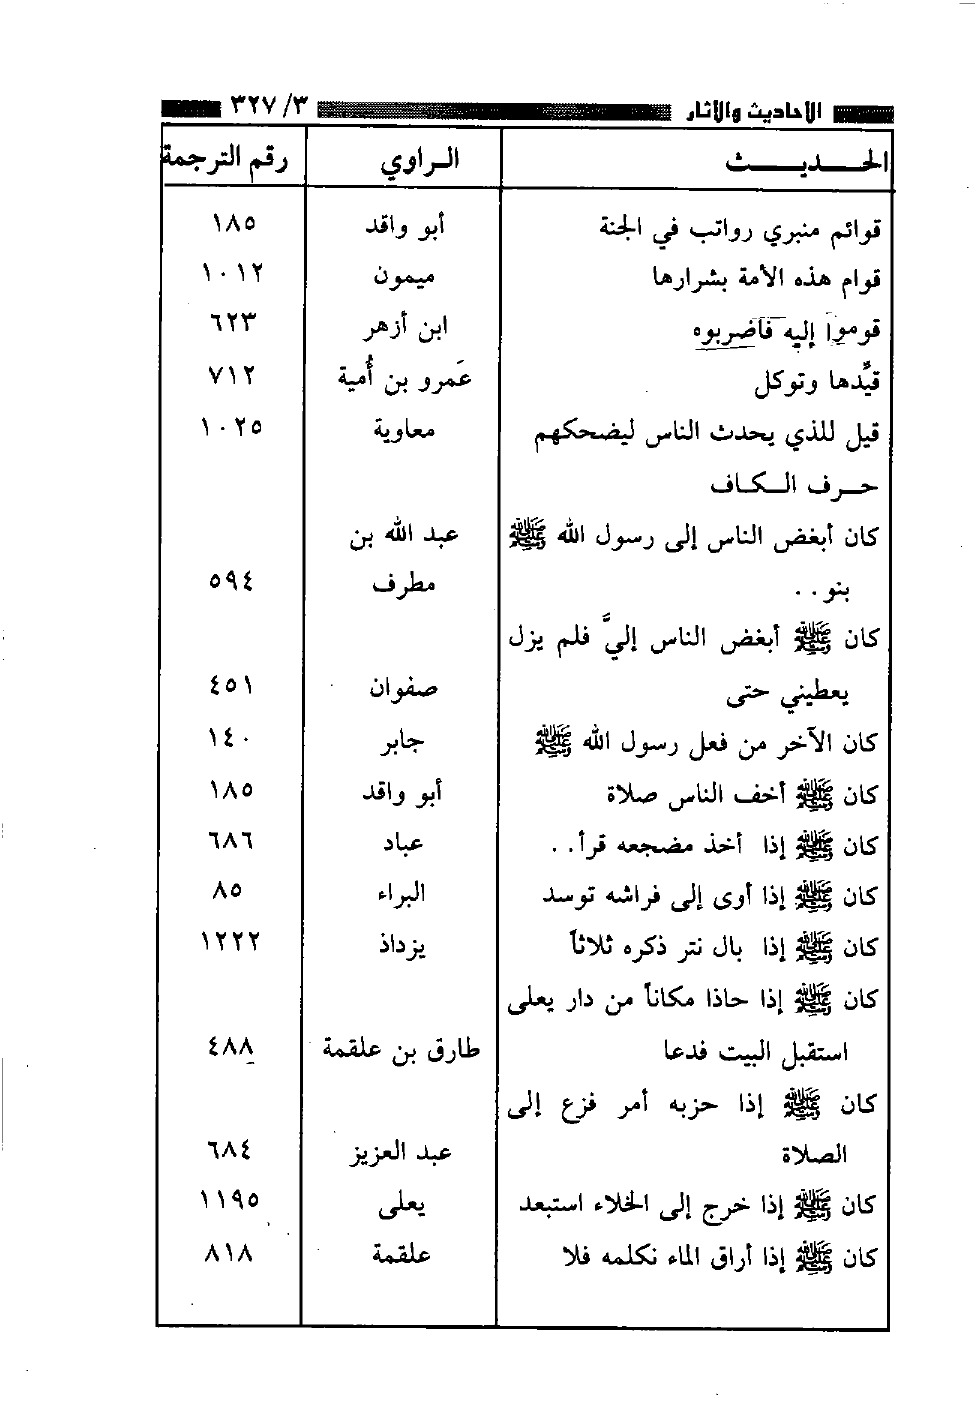 الأحاديث والآثار ٣٢٧/٣
الحـــديـــث الـراوي رقم الترجمة
قوائم منبري رواتب في الجنة أبو واقد ١٨٥
قوام هذه الأمة بشرارها ميمون ١٠١٢
قوموا إليه فاضربوه ابن أزهر ٦٢٣
قيِّدها وتوكل عَمرو بن أُمية ٧١٢
قيل للذي يحدث الناس ليضحكهم معاوية ١٠٢٥
حـرف الـكـاف
كان أبغض الناس إلى رسول الله ﷺ عبد الله بن
بنو.. مطرف ٥٩٤
كان ﷺ أبغض الناس إليَّ فلم يزل
يعطيني حتى صفوان ٤٥١
كان الآخر من فعل رسول الله ﷺ جابر ١٤٠
كان ﷺ أخف الناس صلاة أبو واقد ١٨٥
كان ﷺ إذا أخذ مضجعه قرأ.. عباد ٦٨٦
كان ﷺ إذا أوى إلى فراشه توسد البراء ٨٥
كان ﷺ إذا بال نتر ذكره ثلاثاً يزداذ ١٢٢٢
كان ﷺ إذا حاذا مكاناً من دار يعلى
استقبل البيت فدعا طارق بن علقمة ٤٨٨
كان ﷺ إذا حزبه أمر فزع إلى
الصلاة عبد العزيز ٦٨٤
كان ﷺ إذا خرج إلى الخلاء استبعد يعلى ١١٩٥
كان ﷺ إذا أراق الماء نكلمه فلا علقمة ٨١٨